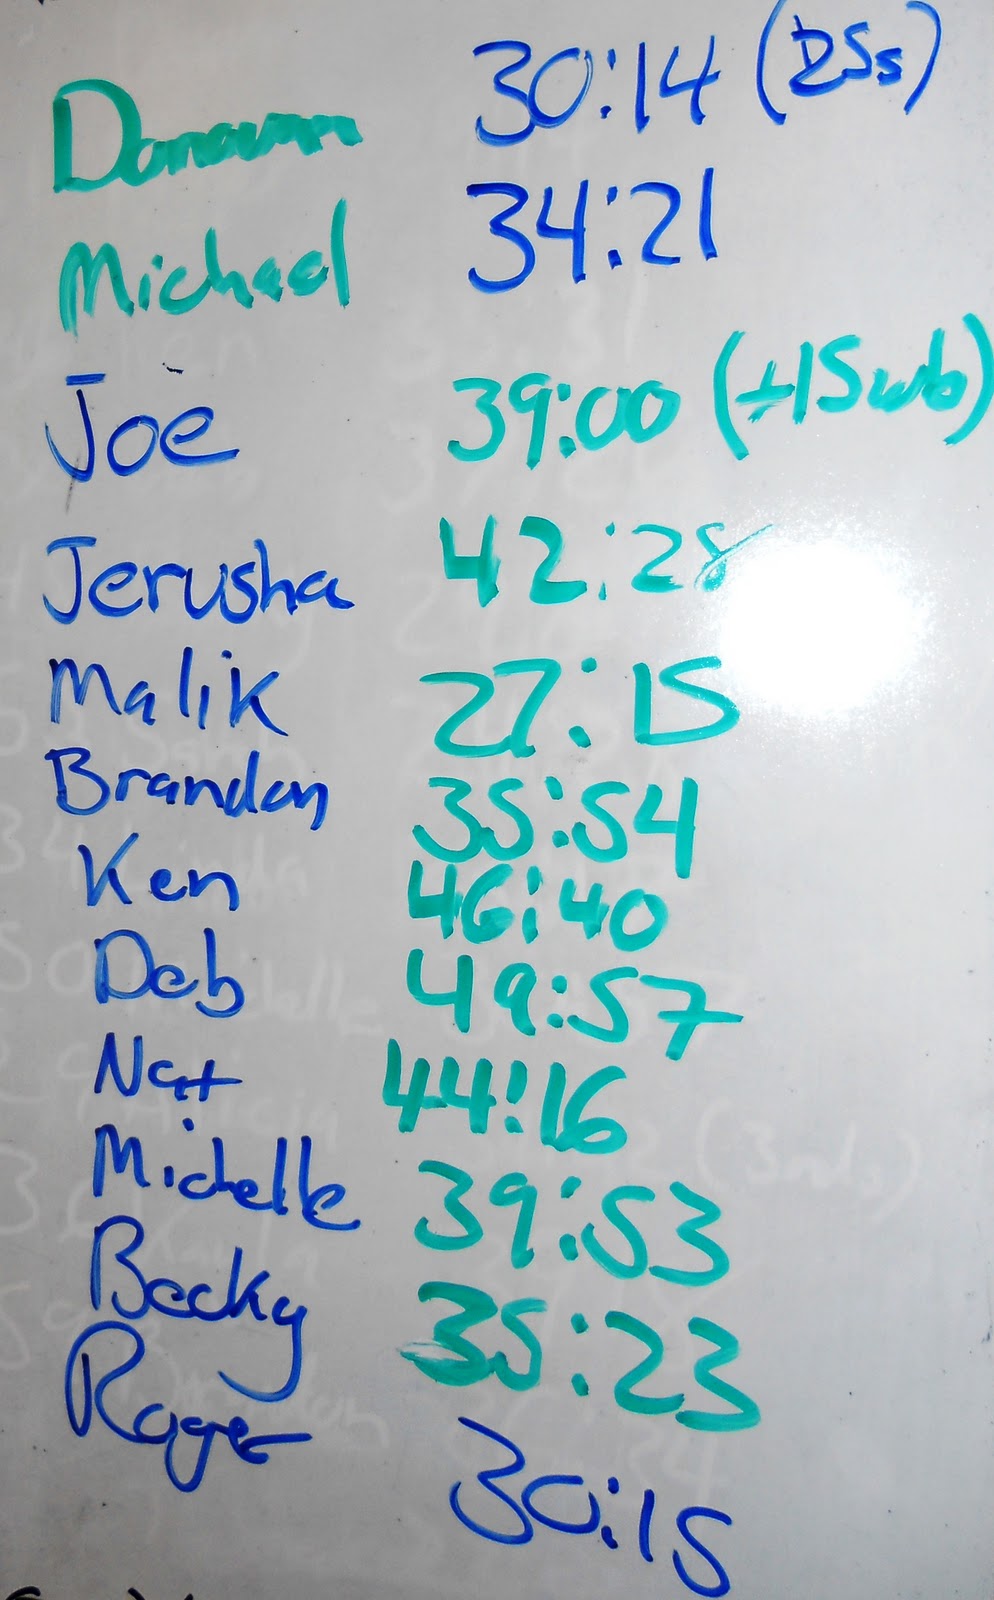 Donavan 30:14 (25s)
Michael 34:21
Joe 39:00 (+15wb)
Jerusha 42:28
Malik 27:15
Brandon 35:54
Ken 46:40
Deb 49:57
Nat 44:16
Michelle 39:53
Becky 35:23
Roger 30:15